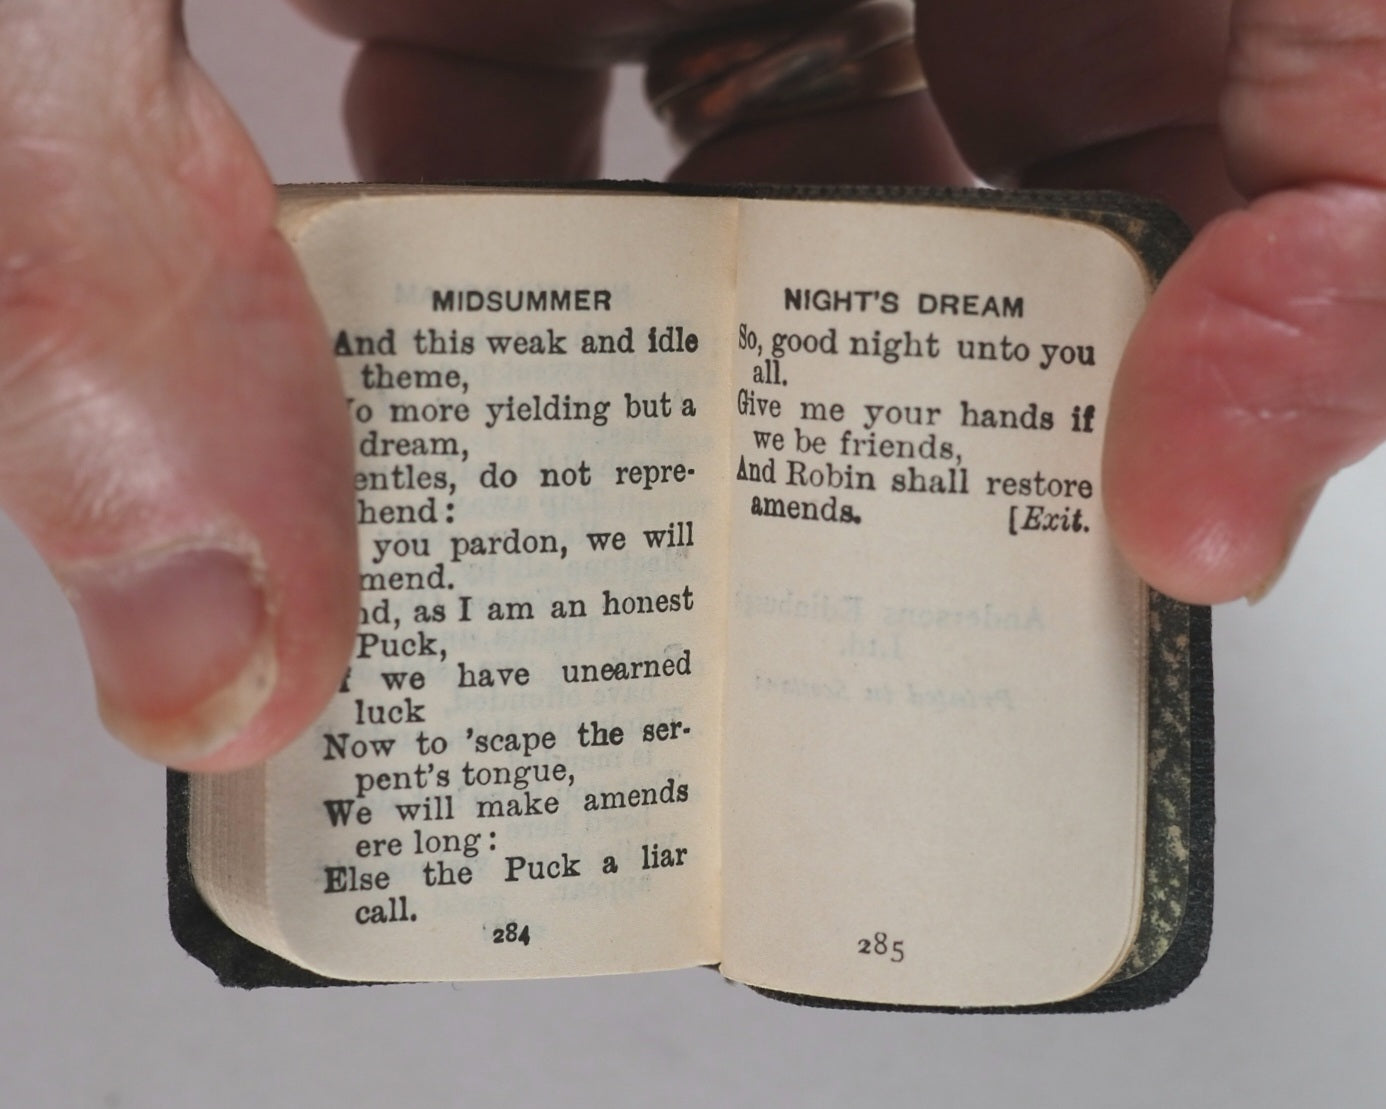 MIDSUMMER
And this weak and idle
theme,
No more yielding but a
dream,
entles, do not repre-
hend:
you pardon, we will
mend.
nd, as I am an honest
Puck,
f we have unearned
luck
Now to 'scape the ser-
pent's tongue,
We will make amends
ere long:
Else the Puck a liar
call.
284
NIGHT'S DREAM
So, good night unto you
all.
Give me your hands if
we be friends,
And Robin shall restore
amends. [Exit.
285